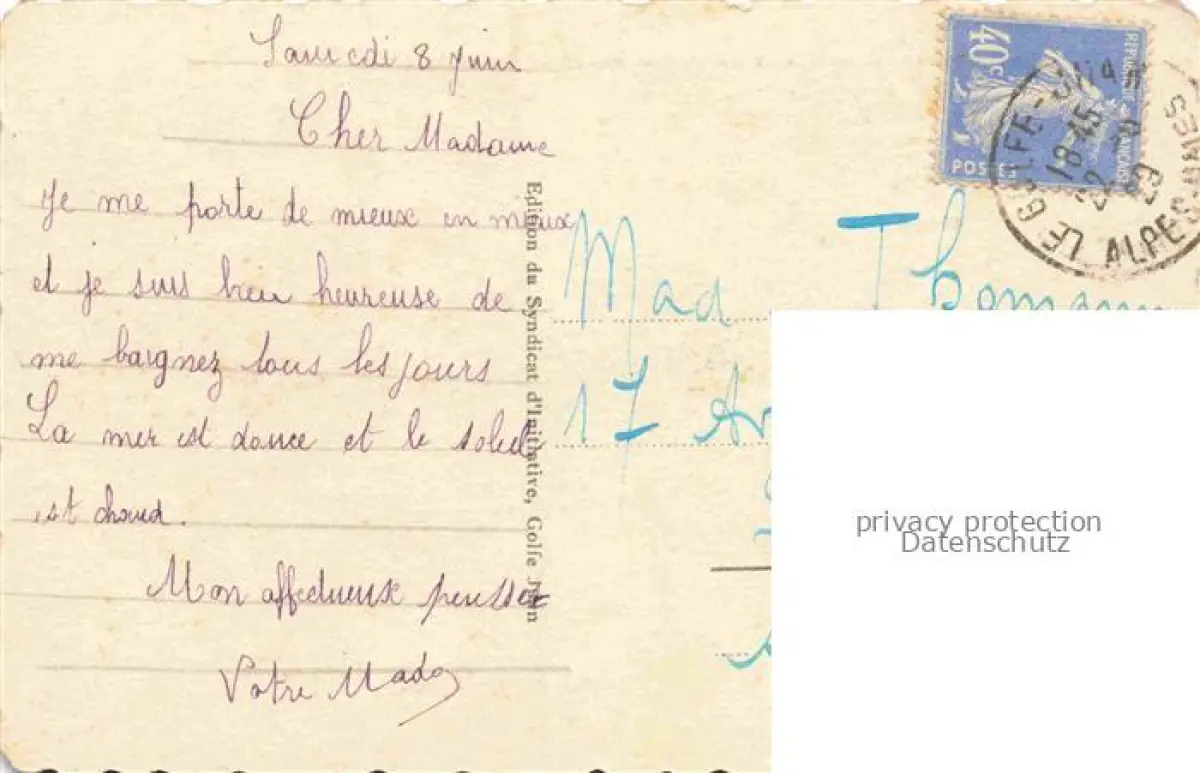 Samedi 8 juin
Cher Madame
Je me porte de mieux en mieux
et je suis bien heureuse de
me baignez tous les jours
La mer est douce et le soleil
est chaud.
Mon affectueux pensée
Votre Mado
Edition du Syndicat d'Initiative, Golfe Juan
40c
REPUBLIQUE FRANÇAISE
POSTES
LE GOLFE-JUAN
18 45
ALPES-MMES
Mad
17 Av
privacy protection
Datenschutz